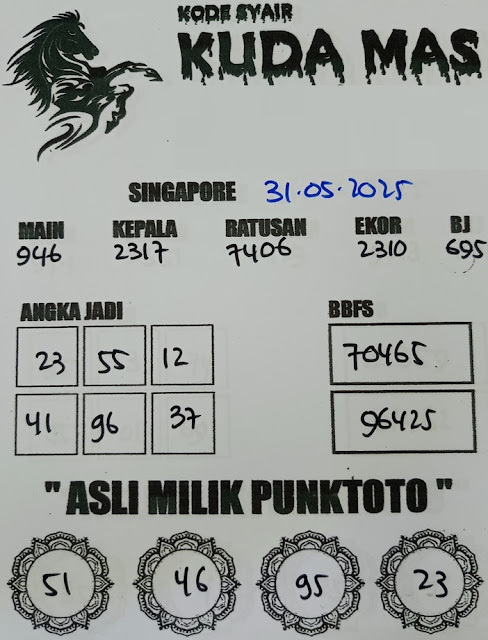 KODE SYAIR
KUDA MAS
SINGAPORE 31.05.2025
MAIN KEPALA RATUSAN EKOR BJ
946 2317 7406 2310 695
ANGKA JADI BBFS
23 55 12 70465
41 96 37 96425
" ASLI MILIK PUNKTOTO "
51 46 95 23